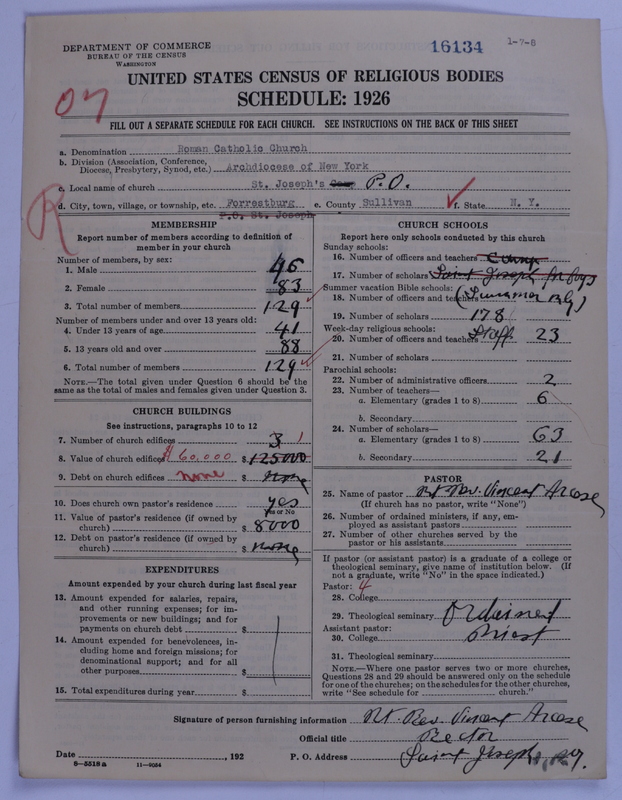 DEPARTMENT OF COMMERCE
BUREAU OF THE CENSUS
WASHINGTON
16134
1-7-8
UNITED STATES CENSUS OF RELIGIOUS BODIES
SCHEDULE: 1926
07
FILL OUT A SEPARATE SCHEDULE FOR EACH CHURCH. SEE INSTRUCTIONS ON THE BACK OF THIS SHEET
a. Denomination Roman Catholic Church
b. Division (Association, Conference,
Diocese, Presbytery, Synod, etc.) Archdiocese of New York
c. Local name of church St. Joseph's Camp P.O.
R
d. City, town, village, or township, etc. Forrestburg e. County Sullivan f. State N. Y.
P.O. St. Joseph
MEMBERSHIP
Report number of members according to definition of
member in your church
Number of members, by sex:
1. Male 46
2. Female 83
3. Total number of members 129
Number of members under and over 13 years old:
4. Under 13 years of age 41
5. 13 years old and over 88
6. Total number of members 129
NOTE.—The total given under Question 6 should be the
same as the total of males and females given under Question 3.
CHURCH BUILDINGS
See instructions, paragraphs 10 to 12
7. Number of church edifices 3 1
8. Value of church edifices $60,000 $ 125000
9. Debt on church edifices none $ none
10. Does church own pastor's residence yes
Yes or No
11. Value of pastor's residence (if owned by
church) $ 8000
12. Debt on pastor's residence (if owned by
church) $ none
EXPENDITURES
Amount expended by your church during last fiscal year
13. Amount expended for salaries, repairs,
and other running expenses; for im-
provements or new buildings; and for
payments on church debt $
14. Amount expended for benevolences, in-
cluding home and foreign missions; for
denominational support; and for all
other purposes $
15. Total expenditures during year $
CHURCH SCHOOLS
Report here only schools conducted by this church
Sunday schools:
16. Number of officers and teachers Camp
17. Number of scholars Saint Joseph for boys
Summer vacation Bible schools:
18. Number of officers and teachers (Summer only)
19. Number of scholars 178
Week-day religious schools:
20. Number of officers and teachers Staff 23
21. Number of scholars
Parochial schools:
22. Number of administrative officers 2
23. Number of teachers—
a. Elementary (grades 1 to 8) 6
b. Secondary
24. Number of scholars—
a. Elementary (grades 1 to 8) 63
b. Secondary 21
PASTOR
25. Name of pastor Rt Rev. Vincent Arcese
(If church has no pastor, write "None")
26. Number of ordained ministers, if any, em-
ployed as assistant pastors
27. Number of other churches served by the
pastor or his assistants
If pastor (or assistant pastor) is a graduate of a college or
theological seminary, give name of institution below. (If
not a graduate, write "No" in the space indicated.)
Pastor: 4
28. College
29. Theological seminary Ordained
Assistant pastor:
30. College Priest
31. Theological seminary
NOTE.—Where one pastor serves two or more churches,
Questions 28 and 29 should be answered only on the schedule
for one of the churches; on the schedules for the other churches,
write "See schedule for church."
Signature of person furnishing information Rt. Rev. Vincent Arcese
Official title Rector
Date , 192 P. O. Address Saint Joseph N.Y.
8—5518 a 11—9064